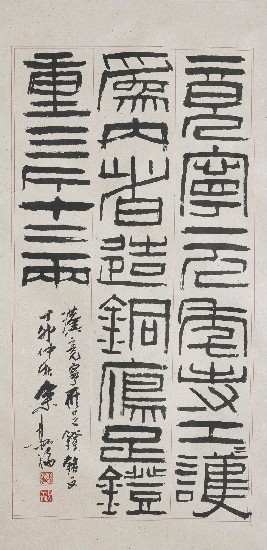 竟寧元年考工護
為內者造銅鴈足鐙
重三斤十二兩
漢竟寧雁足鐙銘文
丁卯仲